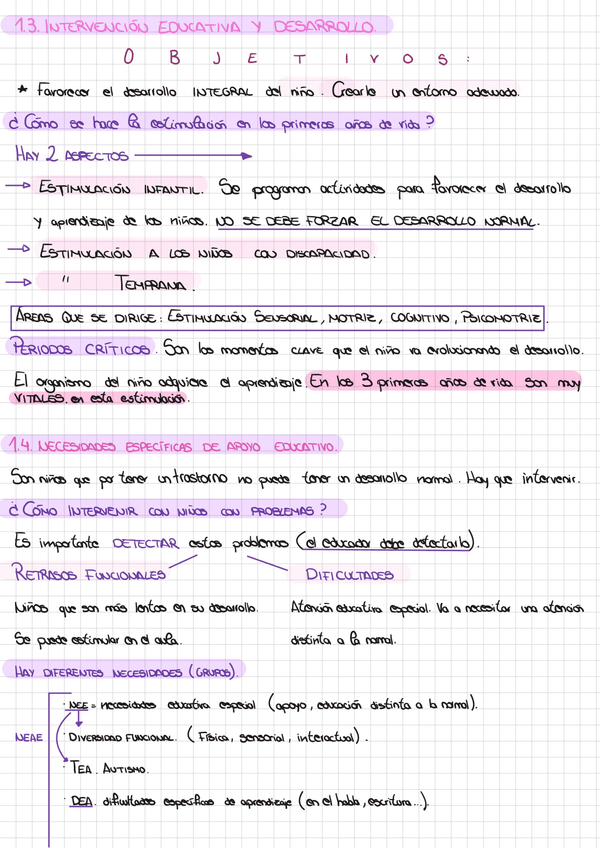 1.3. INTERVENCIÓN EDUCATIVA Y DESARROLLO.
OBJETIVOS:
* Favorecer el desarrollo INTEGRAL del niño. Crearle un entorno adecuado.
¿Cómo se hace la estimulación en los primeros años de vida?
HAY 2 ASPECTOS →
→ ESTIMULACIÓN INFANTIL. Se programan actividades para favorecer el desarrollo
y aprendizaje de los niños. NO SE DEBE FORZAR EL DESARROLLO NORMAL.
→ ESTIMULACIÓN A LOS NIÑOS CON DISCAPACIDAD.
→ " TEMPRANA.
ÁREAS QUE SE DIRIGE: ESTIMULACIÓN SENSORIAL, MOTRIZ, COGNITIVO, PSICOMOTRIZ.
PERIODOS CRÍTICOS. Son los momentos CLAVE que el niño va evolucionando el desarrollo.
El organismo del niño adquiere el aprendizaje. En los 3 primeros años de vida son muy
VITALES. en esta estimulación.
1.4. NECESIDADES ESPECÍFICAS DE APOYO EDUCATIVO.
Son niños que por tener un trastorno no puede tener un desarrollo normal. Hay que intervenir.
¿CÓMO INTERVENIR CON NIÑOS CON PROBLEMAS?
Es importante DETECTAR estos problemas (el educador debe detectarlo).
RETRASOS FUNCIONALES DIFICULTADES
Niños que son más lentos en su desarrollo. Atención educativa especial. Va a necesitar una atención
Se puede estimular en el aula. distinta a la normal.
HAY DIFERENTES NECESIDADES (GRUPOS).
· NEE = necesidades educativa especial (apoyo, educación distinta a la normal).
NEAE · DIVERSIDAD FUNCIONAL. (Física, sensorial, interactual).
· TEA. AUTISMO.
· DEA. dificultades específicas de aprendizaje (en el habla, escritura...).